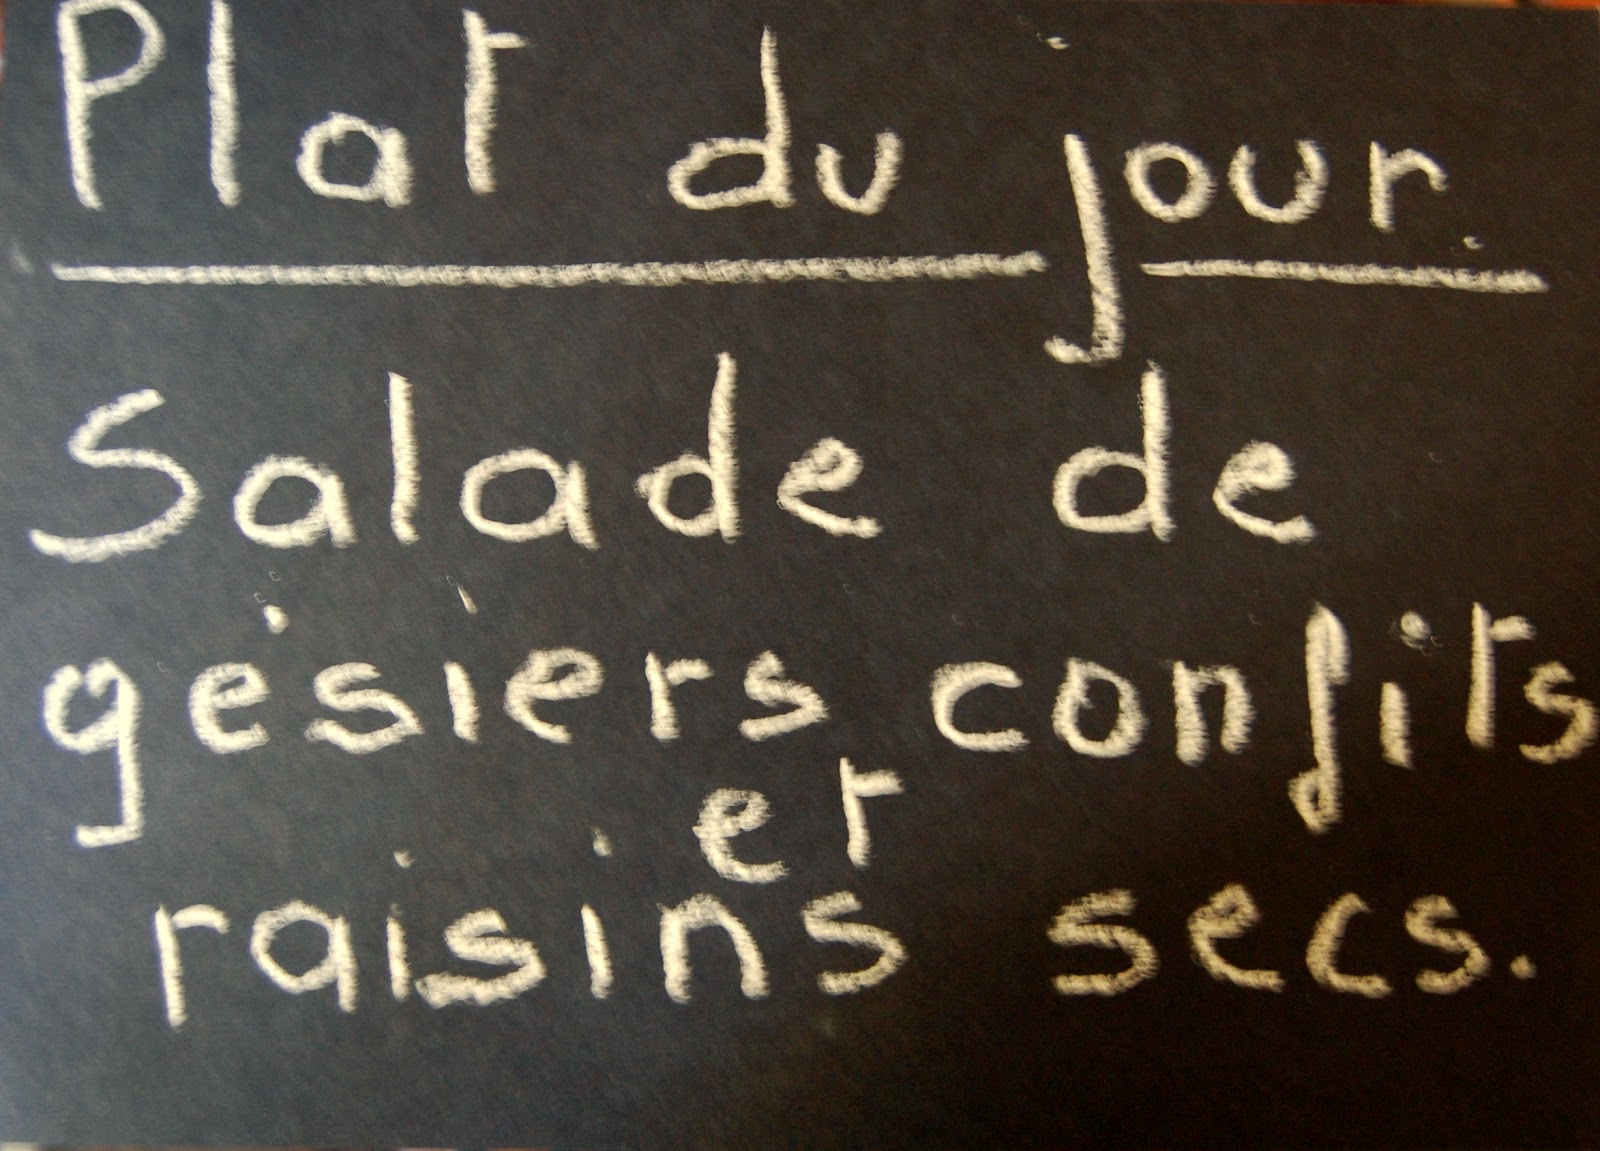 Plat du jour
Salade de
gésiers confits
et
raisins secs.